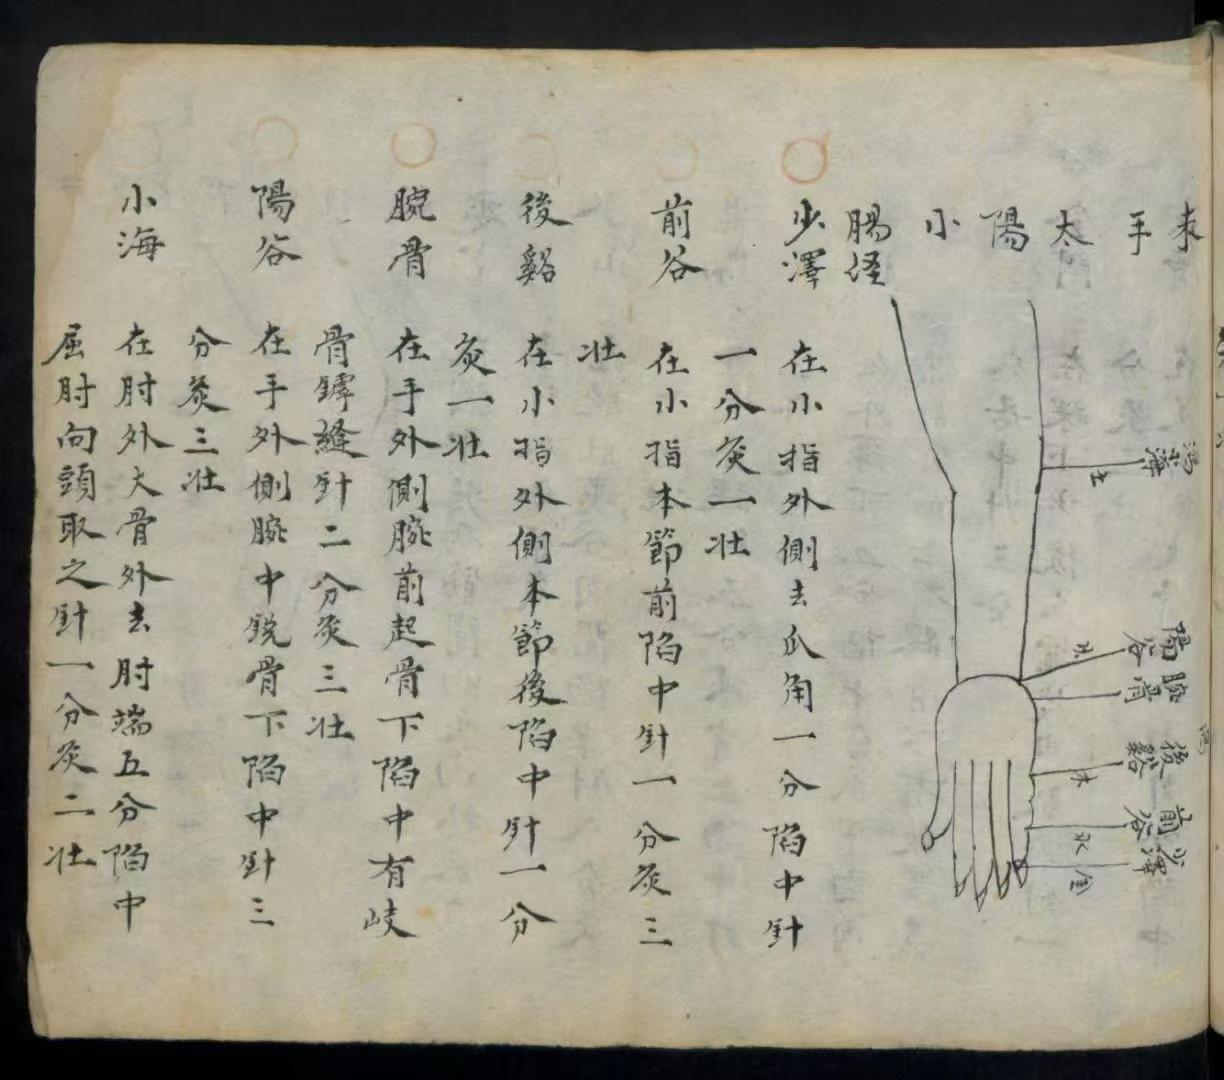 手太陽小
腸経
少澤
在小指外側去爪角一分陷中針
一分灸一壮
前谷
在小指本節前陷中針一分灸三
壮
後谿
在小指外側本節後陷中針一分
灸一壮
腕骨
在手外側腕前起骨下陷中有岐
骨罅縫針二分灸三壮
陽谷
在手外側腕中銳骨下陷中針三
分灸三壮
小海
在肘外大骨外去肘端五分陷中
屈肘向頭取之針一分灸二壮
土
陽谷
火
腕骨
後谿
木
前谷
水
少澤
金